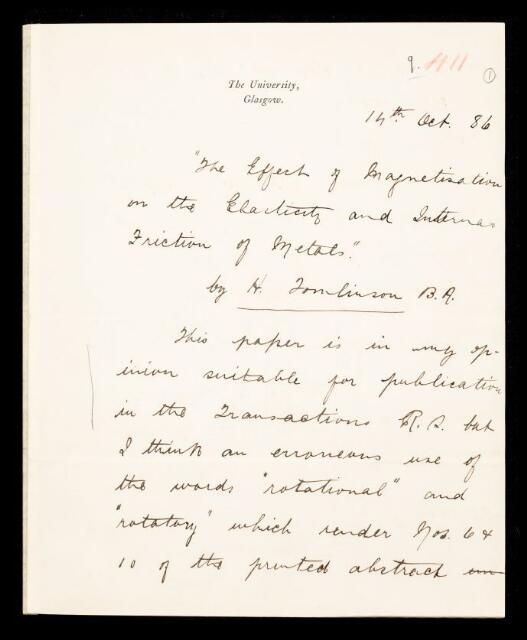 9. 411 1
The University,
Glasgow.
14th Oct. 86
"The Effect of Magnetisation
on the Elasticity and Internal
Friction of Metals."
by H. Tomlinson B.A.
This paper is in my op-
inion suitable for publication
in the Transactions R. S. but
I think an erroneous use of
the words "rotational" and
"rotatory" which render Nos. 6 &
10 of the printed abstract un-